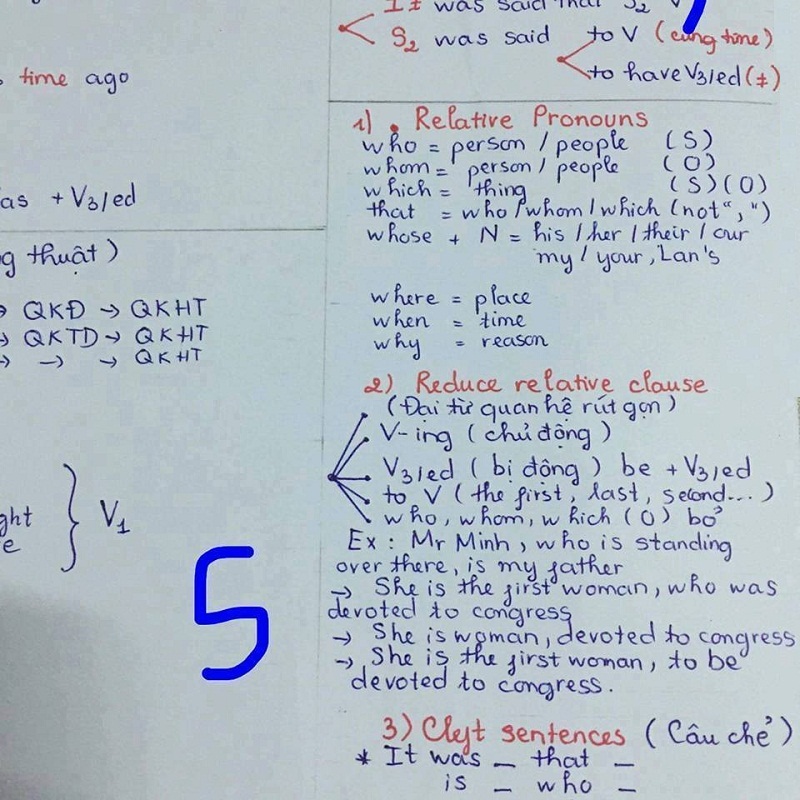 It was said that S2 V
S2 was said to V (cùng time)
to have V3/ed (≠)
time ago
as + V3/ed
g thuật)
→ QKĐ → QKHT
→ QKTD → QKHT
→ → → QKHT
ght
e
} V1
5
1) Relative Pronouns
who = person / people (S)
whom = person / people (O)
which = thing (S) (O)
that = who / whom / which (not ",")
whose + N = his / her / their / our
my / your, Lan's
where = place
when = time
why = reason
2) Reduce relative clause
(Đại từ quan hệ rút gọn)
V-ing (chủ động)
V3/ed (bị động) be + V3/ed
to V (the first, last, second...)
who, whom, which (O) bỏ
Ex: Mr Minh, who is standing
over there, is my father
→ She is the first woman, who was
devoted to congress
→ She is woman, devoted to congress
→ She is the first woman, to be
devoted to congress.
3) Cleft sentences (Câu chẻ)
* It was _ that _
is _ who _